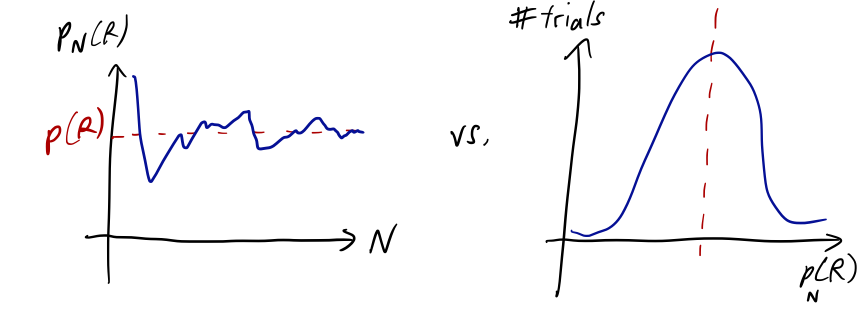 P_N(R)
p(R)
N
vs.
# trials
p_N(R)